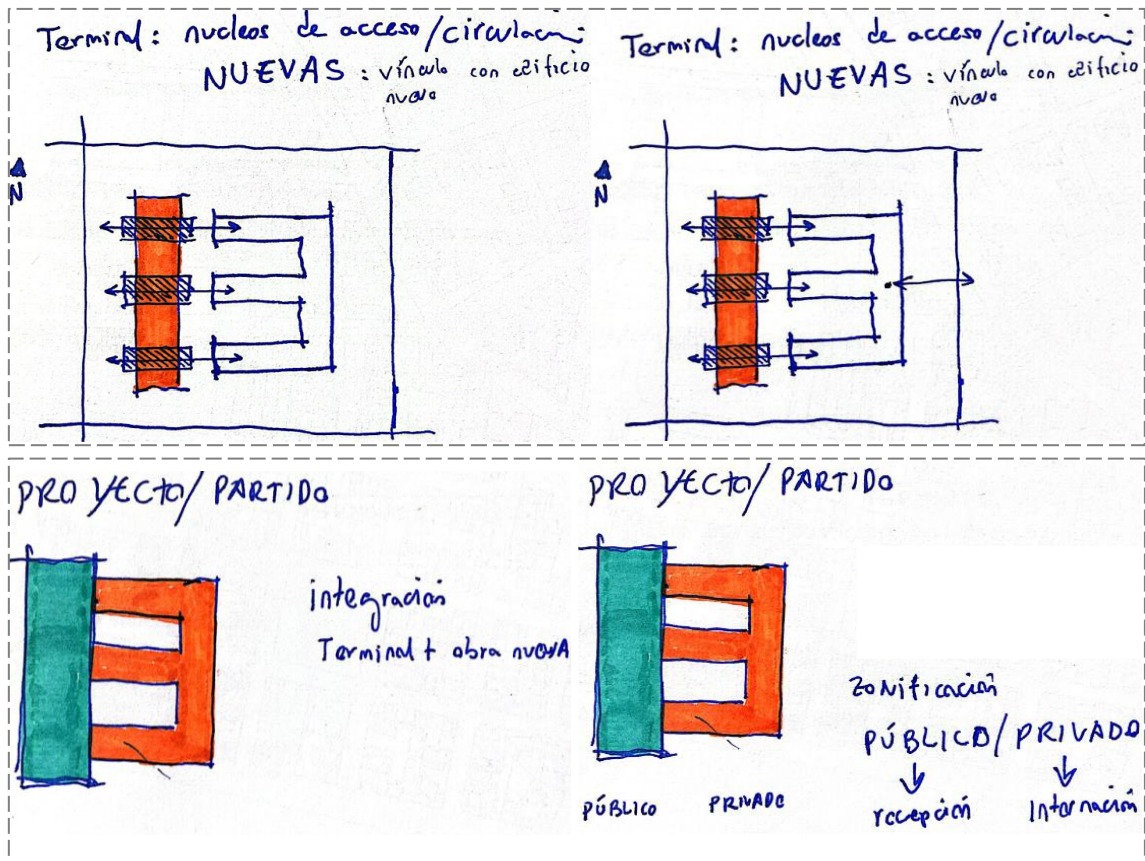 Terminal: nucleos de acceso/circulación
NUEVAS: vínculo con edificio
nuevo
N
Terminal: nucleos de acceso/circulación
NUEVAS: vínculo con edificio
nuevo
N
PROYECTO/PARTIDO
integración
Terminal + obra nueva
PROYECTO/PARTIDO
Zonificación
PÚBLICO/PRIVADO
recepción
Internación
PÚBLICO
PRIVADO